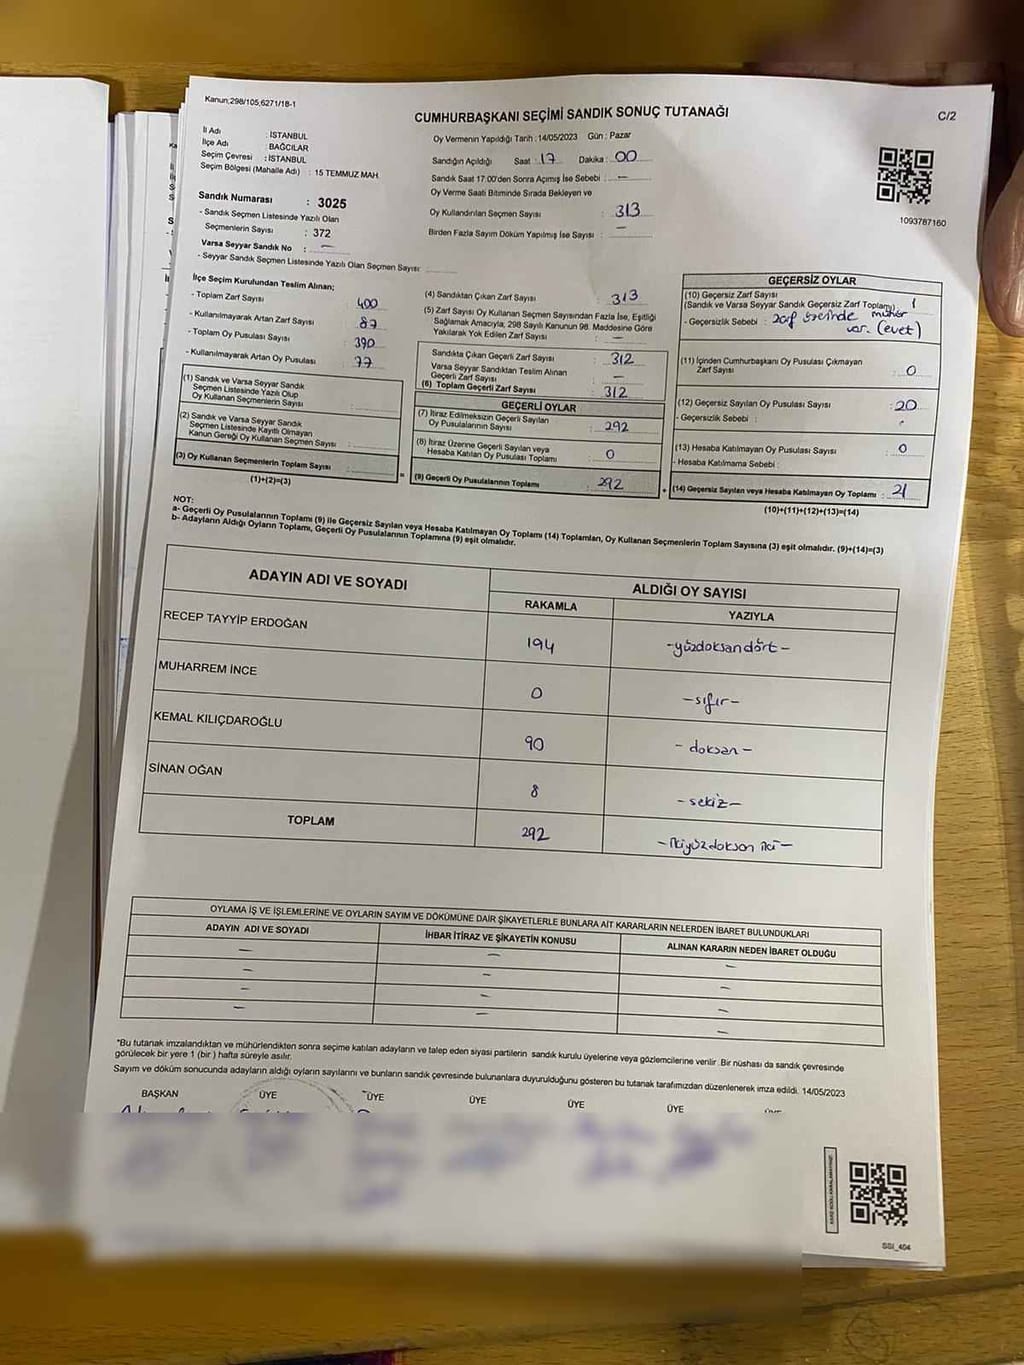 Kanun;298/105,6271/18-1
CUMHURBAŞKANI SEÇİMİ SANDIK SONUÇ TUTANAĞI
C/2
İl Adı : İSTANBUL
İlçe Adı : BAĞCILAR
Seçim Çevresi : İSTANBUL
Seçim Bölgesi (Mahalle Adı) : 15 TEMMUZ MAH.
Sandık Numarası : 3025
- Sandık Seçmen Listesinde Yazılı Olan
Seçmenlerin Sayısı : 372
Varsa Seyyar Sandık No : —
- Seyyar Sandık Seçmen Listesinde Yazılı Olan Seçmen Sayısı:
Oy Vermenin Yapıldığı Tarih : 14/05/2023 Gün : Pazar
Sandığın Açıldığı Saat : 17 Dakika : 00
Sandık Saat 17:00'den Sonra Açımış İse Sebebi : —
Oy Verme Saati Bitiminde Sırada Bekleyen ve
Oy Kullandırılan Seçmen Sayısı : 313
Birden Fazla Sayım Döküm Yapılmış İse Sayısı : —
1093787160
İlçe Seçim Kurulundan Teslim Alınan;
- Toplam Zarf Sayısı : 400
- Kullanılmayarak Artan Zarf Sayısı : 87
- Toplam Oy Pusulası Sayısı : 390
- Kullanılmayarak Artan Oy Pusulası : 77
(1) Sandık ve Varsa Seyyar Sandık
Seçmen Listesinde Yazılı Olup
Oy Kullanan Seçmenlerin Sayısı :
(2) Sandık ve Varsa Seyyar Sandık
Seçmen Listesinde Kayıtlı Olmayan
Kanun Gereği Oy Kullanan Seçmen Sayısı :
(3) Oy Kullanan Seçmenlerin Toplam Sayısı :
(1)+(2)=(3)
(4) Sandıktan Çıkan Zarf Sayısı : 313
(5) Zarf Sayısı Oy Kullanan Seçmen Sayısından Fazla İse, Eşitliği
Sağlamak Amacıyla; 298 Sayılı Kanunun 98. Maddesine Göre
Yakılarak Yok Edilen Zarf Sayısı : —
Sandıkta Çıkan Geçerli Zarf Sayısı : 312
Varsa Seyyar Sandıktan Teslim Alınan
Geçerli Zarf Sayısı : —
(6) Toplam Geçerli Zarf Sayısı : 312
GEÇERLİ OYLAR
(7) İtiraz Edilmeksizin Geçerli Sayılan
Oy Pusulalarının Sayısı : 292
(8) İtiraz Üzerine Geçerli Sayılan veya
Hesaba Katılan Oy Pusulası Toplamı : 0
(9) Geçerli Oy Pusulalarının Toplamı : 292
GEÇERSİZ OYLAR
(10) Geçersiz Zarf Sayısı
(Sandık ve Varsa Seyyar Sandık Geçersiz Zarf Toplamı) : 1
- Geçersizlik Sebebi : Zarf üzerinde mühür
var. (evet)
(11) İçinden Cumhurbaşkanı Oy Pusulası Çıkmayan
Zarf Sayısı : 0
(12) Geçersiz Sayılan Oy Pusulası Sayısı : 20
- Geçersizlik Sebebi :
(13) Hesaba Katılmayan Oy Pusulası Sayısı : 0
- Hesaba Katılmama Sebebi :
(14) Geçersiz Sayılan veya Hesaba Katılmayan Oy Toplamı : 21
(10)+(11)+(12)+(13)=(14)
NOT:
a- Geçerli Oy Pusulalarının Toplamı (9) ile Geçersiz Sayılan veya Hesaba Katılmayan Oy Toplamı (14) Toplamları, Oy Kullanan Seçmenlerin Toplam Sayısına (3) eşit olmalıdır. (9)+(14)=(3)
b- Adayların Aldığı Oyların Toplamı, Geçerli Oy Pusulalarının Toplamına (9) eşit olmalıdır.
ADAYIN ADI VE SOYADI
ALDIĞI OY SAYISI
RAKAMLA YAZIYLA
RECEP TAYYİP ERDOĞAN 194 -yüzdoksandört-
MUHARREM İNCE 0 -sıfır-
KEMAL KILIÇDAROĞLU 90 -doksan-
SİNAN OĞAN 8 -sekiz-
TOPLAM 292 -ikiyüzdoksan iki-
OYLAMA İŞ VE İŞLEMLERİNE VE OYLARIN SAYIM VE DÖKÜMÜNE DAİR ŞİKAYETLERLE BUNLARA AİT KARARLARIN NELERDEN İBARET BULUNDUKLARI
ADAYIN ADI VE SOYADI İHBAR İTİRAZ VE ŞİKAYETİN KONUSU ALINAN KARARIN NEDEN İBARET OLDUĞU
— — —
— — —
— — —
— — —
*Bu tutanak imzalandıktan ve mühürlendikten sonra seçime katılan adayların ve talep eden siyasi partilerin sandık kurulu üyelerine veya gözlemcilerine verilir. Bir nüshası da sandık çevresinde
görülecek bir yere 1 (bir) hafta süreyle asılır.
Sayım ve döküm sonucunda adayların aldığı oyların sayılarını ve bunların sandık çevresinde bulunanlara duyurulduğunu gösteren bu tutanak tarafımızdan düzenlenerek imza edildi. 14/05/2023
BAŞKAN ÜYE ÜYE ÜYE ÜYE ÜYE
SSİ_404